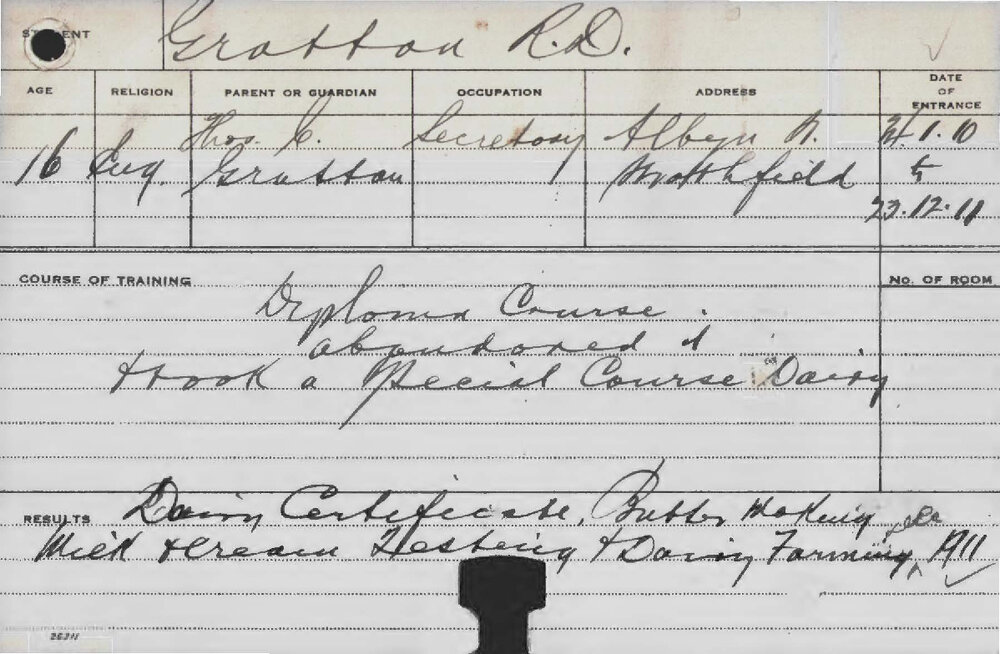 STUDENT Gratton R.D.
AGE RELIGION PARENT OR GUARDIAN OCCUPATION ADDRESS DATE OF ENTRANCE
Thos. C. Secretary Albyn R. 24.1.10
16 Eng. Gratton Northfield to
23.12.11
COURSE OF TRAINING No. OF ROOM
Diploma Course.
abandoned it
& took a special Course Dairy
RESULTS Dairy Certificate, Butter Making
Milk & Cream Testing & Dairy Farming 1911
26311